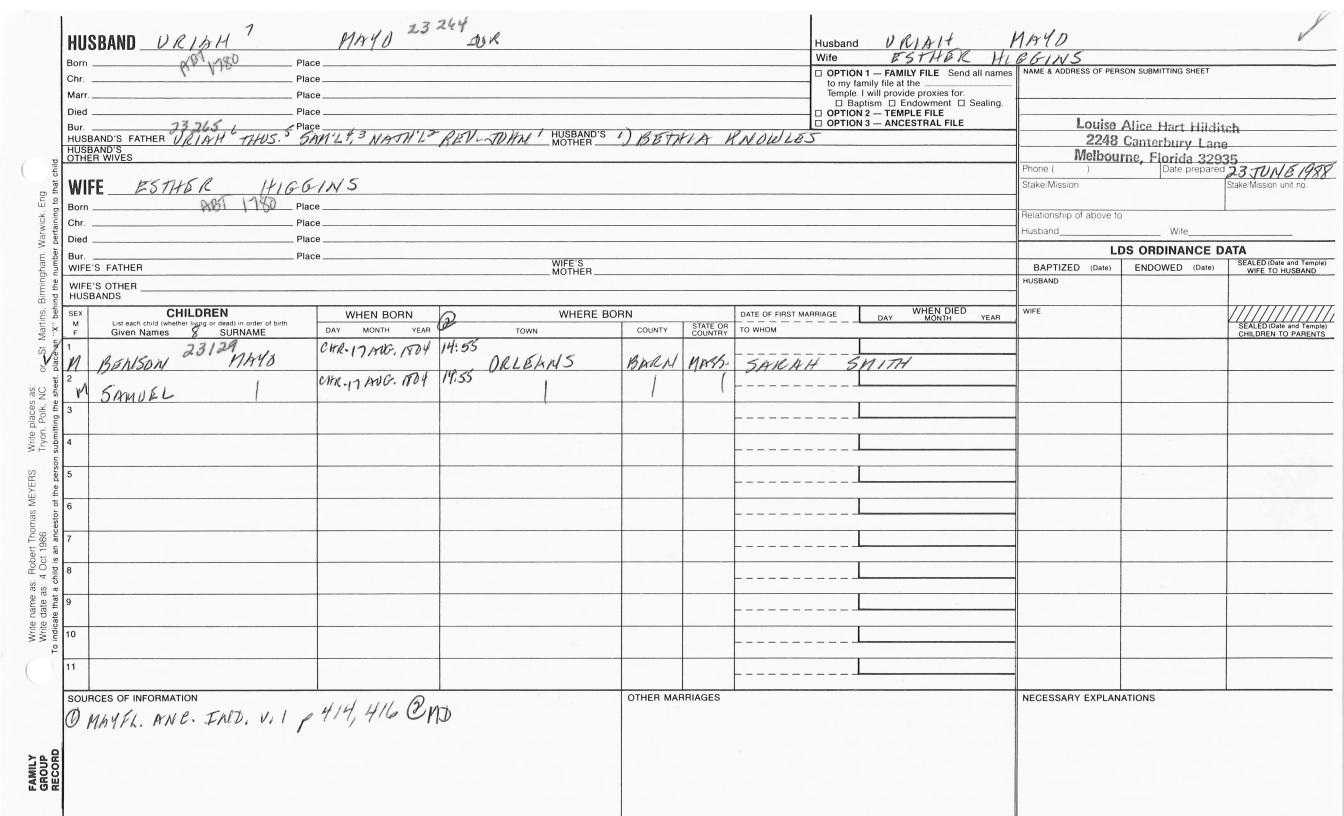 HUSBAND URIAH 7 MAYO 23264 JR
Born ABT 1780 Place
Chr. Place
Marr. Place
Died Place
Bur. 23265 Place
HUSBAND'S FATHER URIAH 6 THOS. 5 SAM'L 4,3 NATH'L 2 REV. JOHN 1 HUSBAND'S MOTHER 1) BETHIA KNOWLES
HUSBAND'S OTHER WIVES
WIFE ESTHER HIGGINS
Born ABT 1780 Place
Chr. Place
Died Place
Bur. Place
WIFE'S FATHER WIFE'S MOTHER
WIFE'S OTHER HUSBANDS
Husband URIAH MAYO
Wife ESTHER HIGGINS
OPTION 1 — FAMILY FILE Send all names
to my family file at the
Temple. I will provide proxies for:
Baptism Endowment Sealing.
OPTION 2 — TEMPLE FILE
OPTION 3 — ANCESTRAL FILE
NAME & ADDRESS OF PERSON SUBMITTING SHEET
Louise Alice Hart Hilditch
2248 Canterbury Lane
Melbourne, Florida 32935
Phone ( ) Date prepared 23 JUNE 1988
Stake/Mission Stake/Mission unit no.
Relationship of above to
Husband Wife
LDS ORDINANCE DATA
BAPTIZED (Date) ENDOWED (Date) SEALED (Date and Temple) WIFE TO HUSBAND
HUSBAND
WIFE
SEALED (Date and Temple) CHILDREN TO PARENTS
SEX M F
CHILDREN
List each child (whether living or dead) in order of birth
Given Names 8 SURNAME
WHEN BORN
DAY MONTH YEAR
2
WHERE BORN
TOWN COUNTY STATE OR COUNTRY
DATE OF FIRST MARRIAGE
TO WHOM
WHEN DIED
DAY MONTH YEAR
1 M BENSON 23129 MAYO CHR. 17 AUG. 1804 14:55 ORLEANS BARN MASS. SARAH SMITH
2 M SAMUEL | CHR. 17 AUG. 1804 14:55 | | |
3
4
5
6
7
8
9
10
11
SOURCES OF INFORMATION
① MAYFL. ANC. IND. V. 1 p 414, 416 ② MD
OTHER MARRIAGES
NECESSARY EXPLANATIONS
Write name as: Robert Thomas MEYERS Write places as: or St. Martins, Birmingham, Warwick, Eng
Write date as: 4 Oct 1986 Tryon, Polk, NC
To indicate that a child is an ancestor of the person submitting the sheet, place an "X" behind the number pertaining to that child
FAMILY
GROUP
RECORD